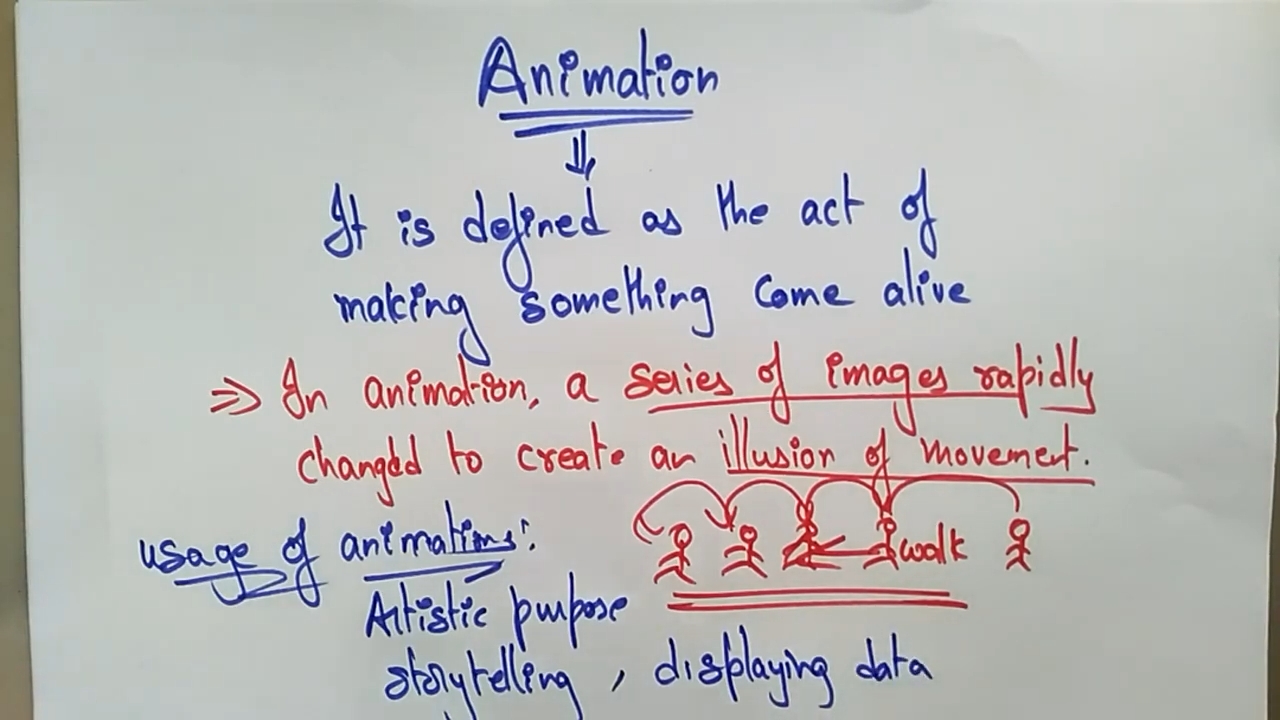 Animation
It is defined as the act of
making something come alive
⇒ In animation, a series of images rapidly
changed to create an illusion of movement.
walk
usage of animations:
Artistic purpose
storytelling, displaying data